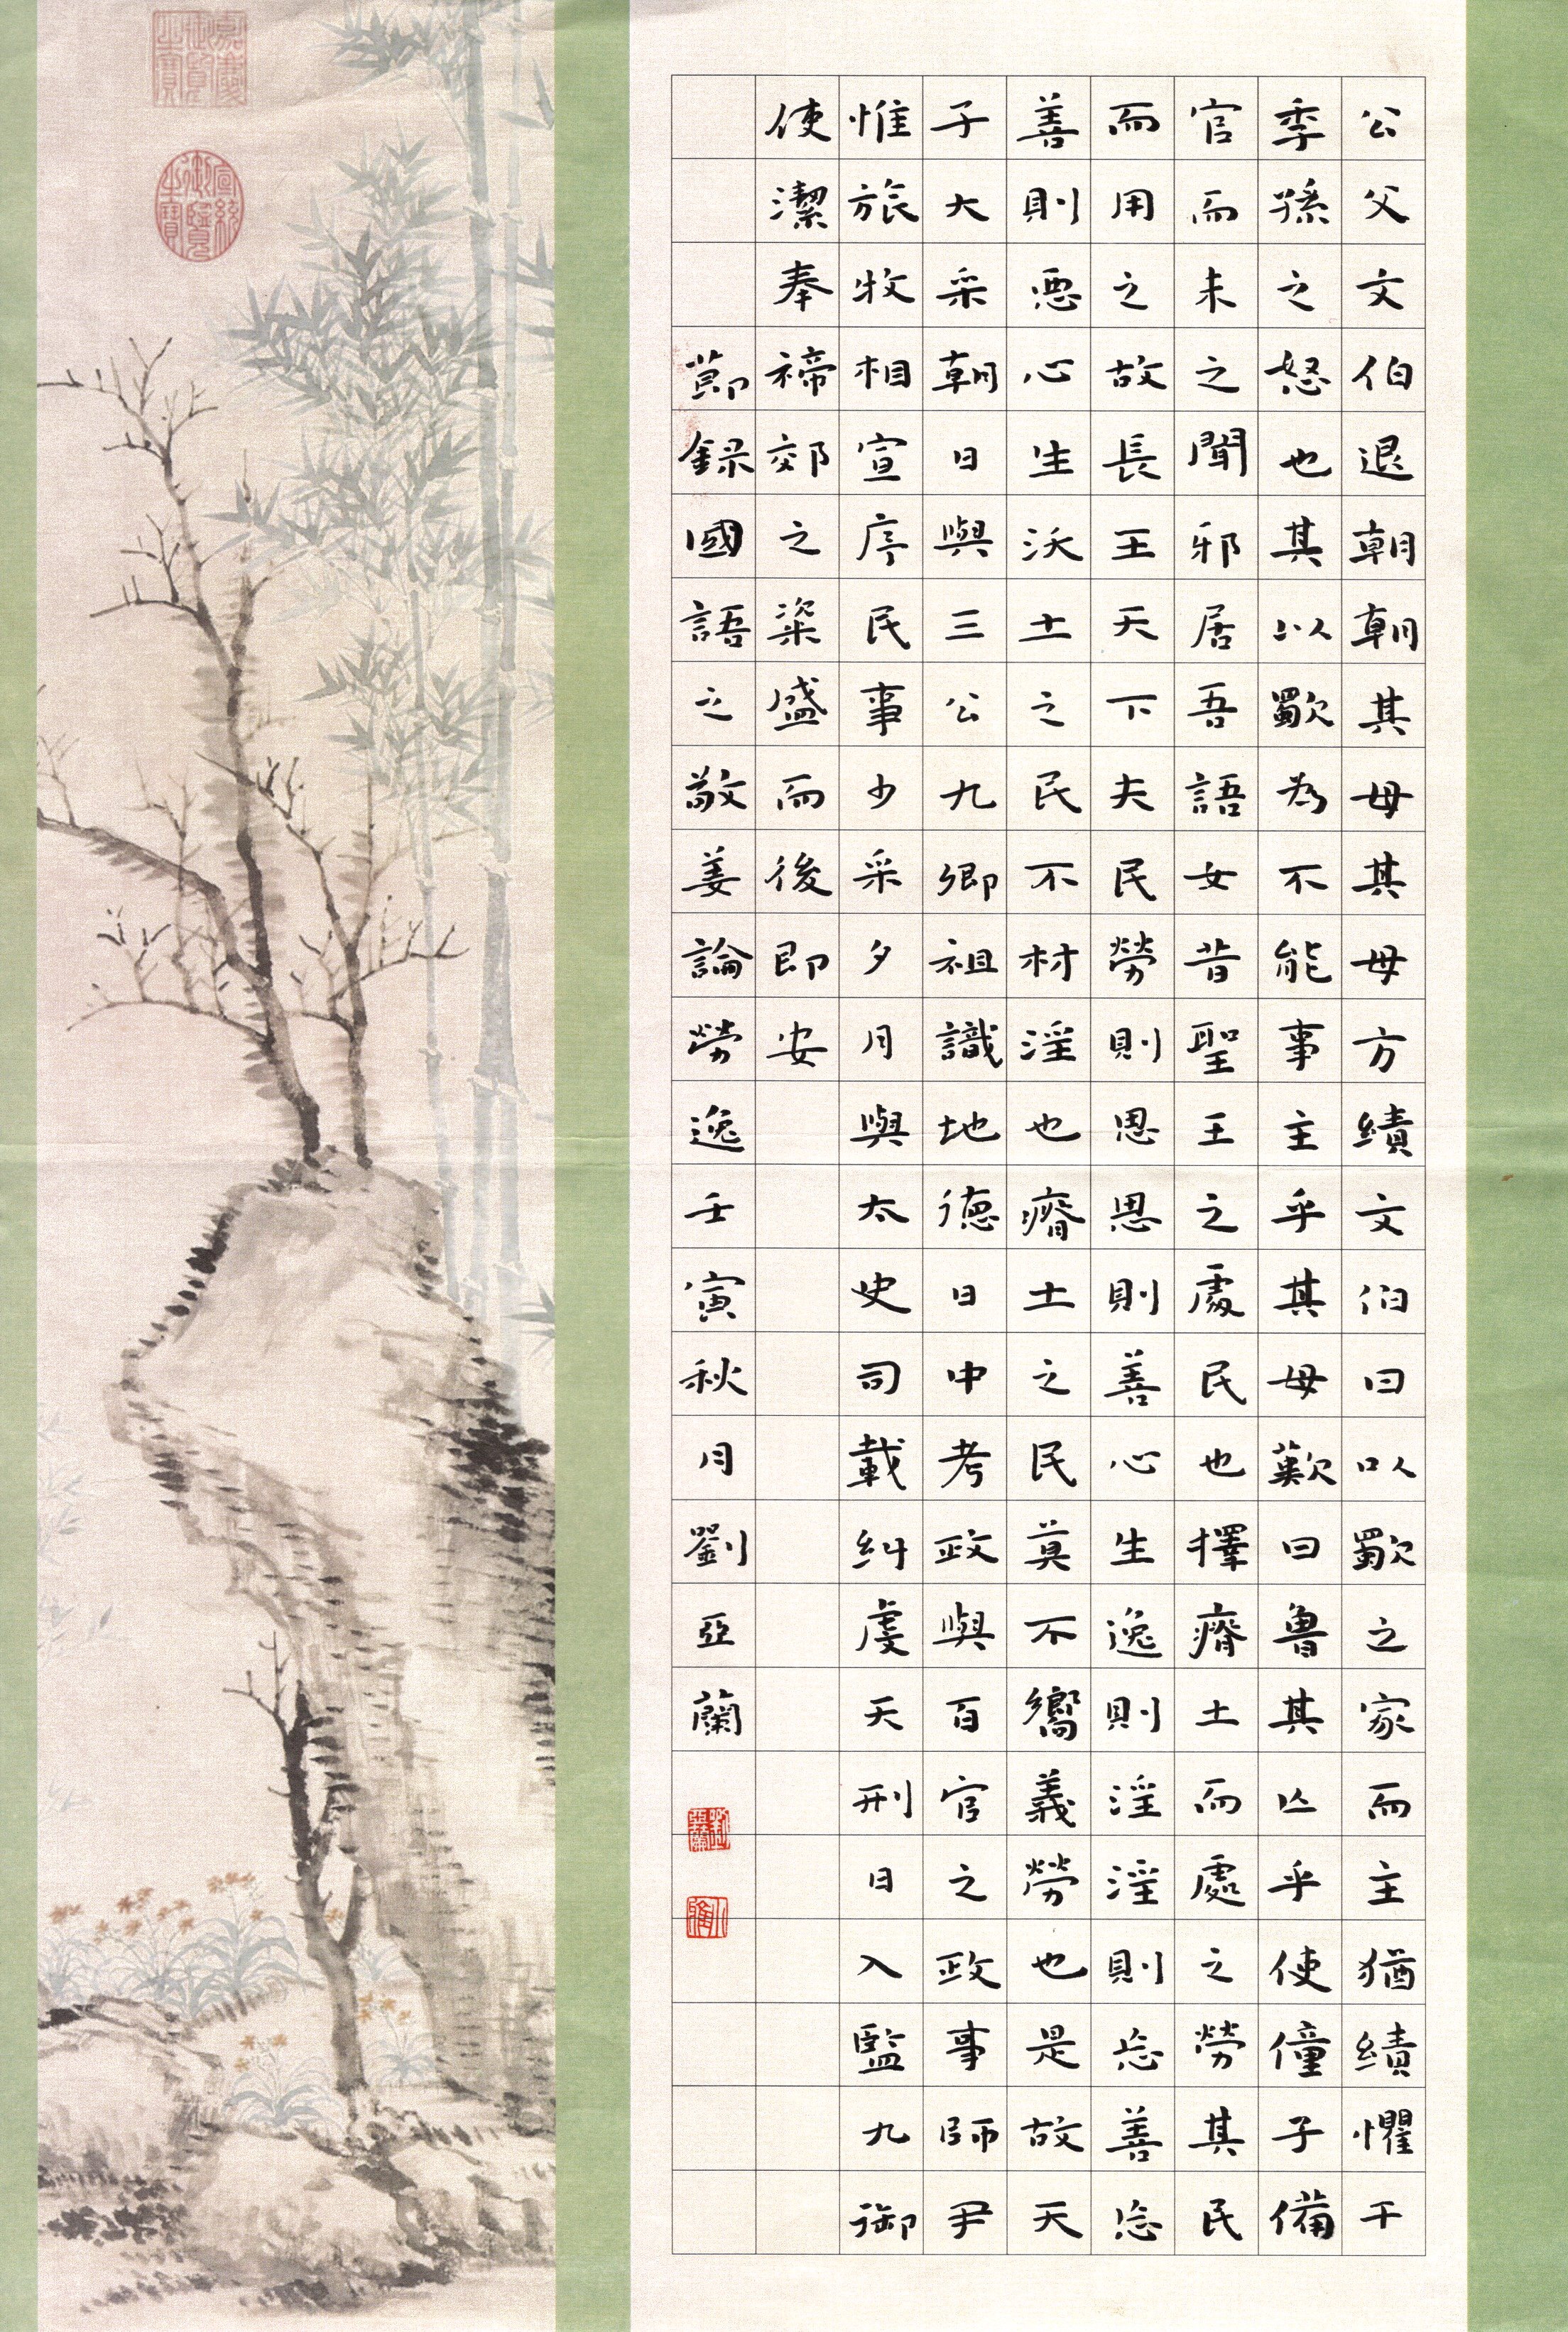 公父文伯退朝朝其母其母方績文伯曰以歜之家而主猶績懼干
季孫之怒也其以歜為不能事主乎其母歎曰魯其亡乎使僮子備
官而未之聞邪居吾語女昔聖王之處民也擇瘠土而處之勞其民
而用之故長王天下夫民勞則思思則善心生逸則淫淫則忘善忘
善則悪心生沃土之民不材淫也瘠土之民莫不嚮義勞也是故天
子大采朝日與三公九卿祖識地德日中考政與百官之政事師尹
惟旅牧相宣序民事少采夕月與太史司載糾虔天刑日入監九御
使潔奉禘郊之粢盛而後即安
莭録國語之敬姜論勞逸壬寅秋月劉亞蘭
劉亞蘭
嘉慶御覽之寶
宣統御覽之寶